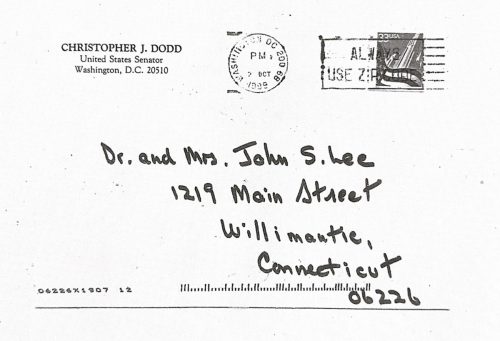 CHRISTOPHER J. DODD
United States Senator
Washington, D.C. 20510
WASHINGTON DC 200
PM
2 OCT
33USA
ALWAYS
USE ZIP CODE
Dr. and Mrs. John S. Lee
1219 Main Street
Willimantic,
Connecticut
06226
06226X1907 12